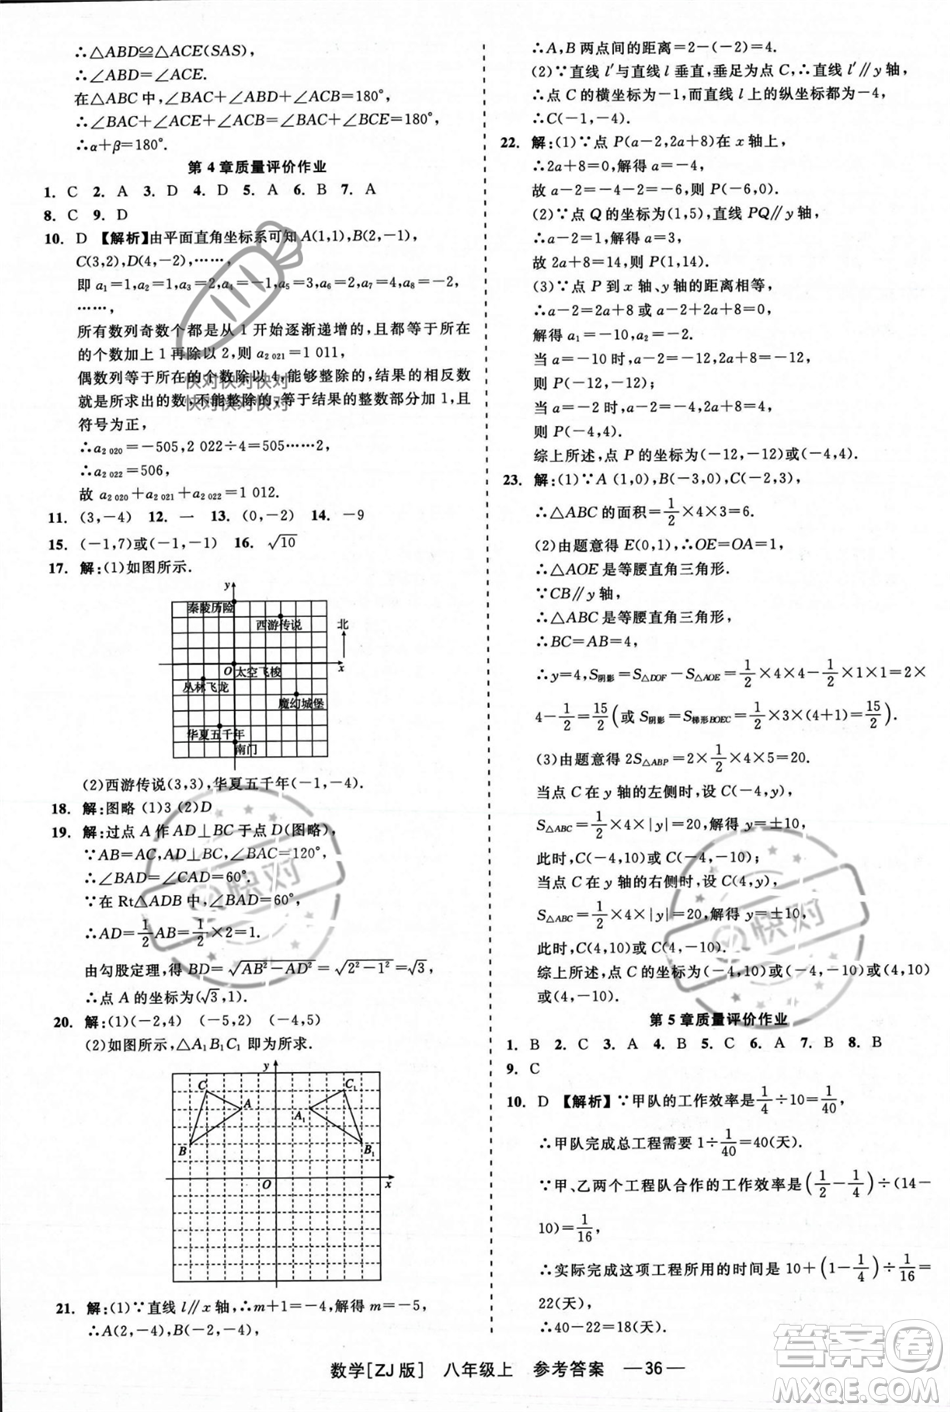 ∴△ABD≌△ACE(SAS),
∴∠ABD=∠ACE.
在△ABC中,∠BAC+∠ABD+∠ACB=180°,
∴∠BAC+∠ACE+∠ACB=180°,
∴∠BAC+∠BCE=180°,
∴α+β=180°.
第4章质量评价作业
1. C 2. A 3. D 4. D 5. A 6. B 7. A
8. C 9. D
10. D 【解析】由平面直角坐标系可知 A(1,1),B(2,-1),
C(3,2),D(4,-2),……,
即 a₁=1,a₂=1,a₃=2,a₄=-1,a₅=3,a₆=2,
……,
所有数列奇数个都是从1开始逐渐递增的,且都等于所在
的个数加上1再除以2,则a₂₀₂₁=1 011,
偶数列等于所在的个数除以4,能够整除的,结果的相反数
就是所求出的数,不能整除的,结果的整数部分加1,且
符号为正,
∴a₂₀₂₀=-505,2 022÷4=505……2,
∴a₂₀₂₂=506,
故 a₂₀₂₀+a₂₀₂₁+a₂₀₂₂=1 012.
11. (3,-4) 12. 一 13. (0,-2) 14. -9
15. (-1,7)或(-1,-1) 16. √10
17. 解:(1)如图所示.
y
秦陵历险
西游传说
北
O
太空飞梭
x
丛林飞龙
魔幻城堡
华夏五千年
南门
(2)西游传说(3,3),华夏五千年(-1,-4).
18. 解:图略 (1)3 (2)D
19. 解:过点A作AD⊥BC于点D(图略),
∵AB=AC,∠BAC=120°,
∴∠BAD=∠CAD=60°.
∵在Rt△ADB中,∠BAD=60°,
∴AD=1/2AB=1,
由勾股定理,得BD=√(AB²-AD²)=√(2²-1²)=√3,
∴点A的坐标为(√3,1).
20. 解:(1)(-2,4) (-5,2) (-4,5)
(2)如图所示,△A₁B₁C₁即为所求.
y
C
C₁
A
A₁
B
B₁
O
x
21. 解:(1)∵直线l∥x轴,∴m+1=-4,解得m=-5,
∴A(2,-4),B(-2,-4),
∴A,B两点间的距离=2-(-2)=4.
(2)∵直线l′与直线l垂直,垂足为点C,∴直线l′∥y轴,
∴点C的横坐标为-1,而直线l上的纵坐标都为-4,
∴C(-1,-4).
22. 解:(1)∵点P(a-2,2a+8)在x轴上,
∴2a+8=0,解得a=-4,
故a-2=-4-2=-6,则P(-6,0).
(2)∵点Q的坐标为(1,5),直线PQ∥y轴,
∴a-2=1,解得a=3,
故2a+8=14,则P(1,14).
(3)∵点P到x轴、y轴的距离相等,
∴a-2=2a+8或a-2+2a+8=0,
解得a₁=-10,a₂=-2.
当a=-10时,a-2=-12,2a+8=-12,
则P(-12,-12);
当a=-2时,a-2=-4,2a+8=4,
则P(-4,4).
综上所述,点P的坐标为(-12,-12)或(-4,4).
23. 解:(1)∵A(1,0),B(-3,0),C(-2,3),
∴△ABC的面积=1/2×4×3=6.
(2)由题意得E(0,1),∴OE=OA=1,
∴△AOE是等腰直角三角形.
∵CB∥y轴,
∴△ABC是等腰直角三角形,
∴BC=AB=4,
∴y=4,S阴影=S△DOF-S△AOE=1/2×4×4-1/2×1×1=2×
4-1/2=15/2(或S阴影=S梯形BOEC=1/2×3×(4+1)=15/2).
(3)由题意得2S△ABP=2×1/2×4×5=20.
当点C在y轴的左侧时,
S△ABC=1/2×4×|y|=20,解得y=±10,
此时,C(-4,10)或(-4,-10);
当点C在y轴的右侧时,
S△ABC=1/2×4×|y|=20,解得y=±10,
此时,C(4,10)或(4,-10).
综上所述,C的坐标为(-4,10)或(-4,-10)或(4,
10)或(4,-10).
第5章质量评价作业
1. B 2. C 3. C 4. B 5. C 6. A 7. B 8. B
9. C
10. D 【解析】∵甲队的工作效率是1/4÷10=1/40,
∴甲队完成总工程需要1÷1/40=40(天).
∵甲、乙两个工程队合作的工作效率是(1/2-1/4)÷(14-
10)=1/16,
∴实际完成这项工程所用的时间是10+(1-1/4)÷1/16=
22(天),
∴40-22=18(天).
数学[ZJ版] 八年级上 参考答案 —36—
快对快对快对
快对快对快对
快对
快对
作业精灵